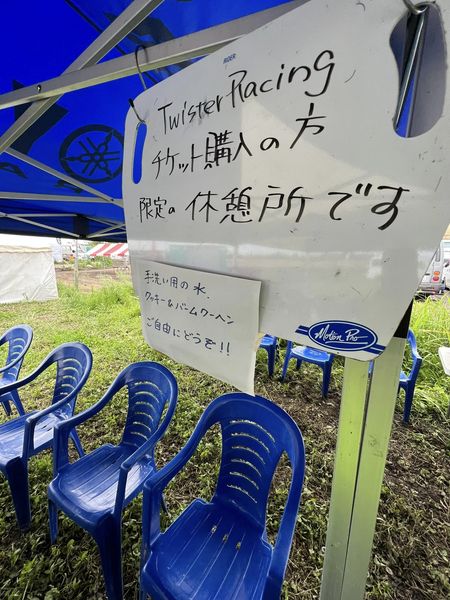 RIDER
Twister Racing
チケット購入の方
限定の 休憩所です
手洗い用の水、
クッキー&バームクーヘン
ご自由にどうぞ!!
Motion Pro